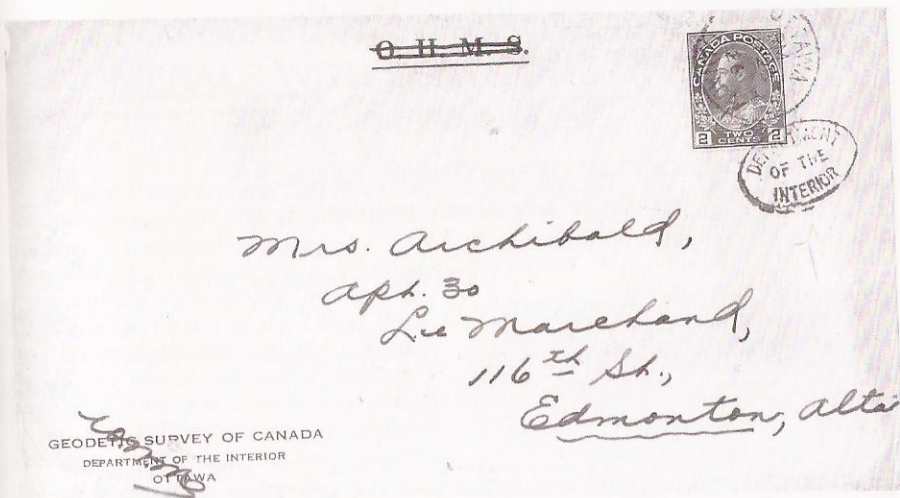 O. H. M. S.
CANADA POSTAGE
2 TWO CENTS 2
DEPARTMENT
OF THE
INTERIOR
Mrs. Archibald,
Apt. 30
Le Marchand,
116th St.,
Edmonton, Alta
GEODETIC SURVEY OF CANADA
DEPARTMENT OF THE INTERIOR
OTTAWA